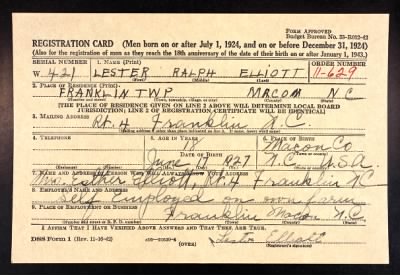 FORM APPROVED
Budget Bureau No. 33-R012-42
REGISTRATION CARD (Men born on or after July 1, 1924, and on or before December 31, 1924)
(Also for the registration of men as they reach the 18th anniversary of the date of their birth on or after January 1, 1943.)
SERIAL NUMBER 1. NAME (Print) ORDER NUMBER
W. 421 LESTER RALPH ELLIOTT 11-629
(First) (Middle) (Last)
2. PLACE OF RESIDENCE (Print)
FRANKLIN TWP MACON N C
(Number and street) (Town, township, village, or city) (County) (State)
[THE PLACE OF RESIDENCE GIVEN ON LINE 2 ABOVE WILL DETERMINE LOCAL BOARD
JURISDICTION; LINE 2 OF REGISTRATION CERTIFICATE WILL BE IDENTICAL]
3. MAILING ADDRESS
Rt. 4 Franklin N.C.
[Mailing address if other than place indicated on line 2. If same, insert word same]
4. TELEPHONE 5. AGE IN YEARS 6. PLACE OF BIRTH
Macon Co
DATE OF BIRTH
June 1927 N.C. USA
7. NAME AND ADDRESS OF PERSON WHO WILL ALWAYS KNOW YOUR ADDRESS
Mrs. Esther Elliott, Rt. 4 Franklin NC
8. EMPLOYER'S NAME AND ADDRESS
Self Employed on own farm
9. PLACE OF EMPLOYMENT OR BUSINESS
Franklin Macon N.C.
(Number and street or R. F. D. number) (Town) (County) (State)
I AFFIRM THAT I HAVE VERIFIED ABOVE ANSWERS AND THAT THEY ARE TRUE.
DSS Form 1 (Rev. 11-16-42) (OVER) Lester Elliott
(Registrant's signature)